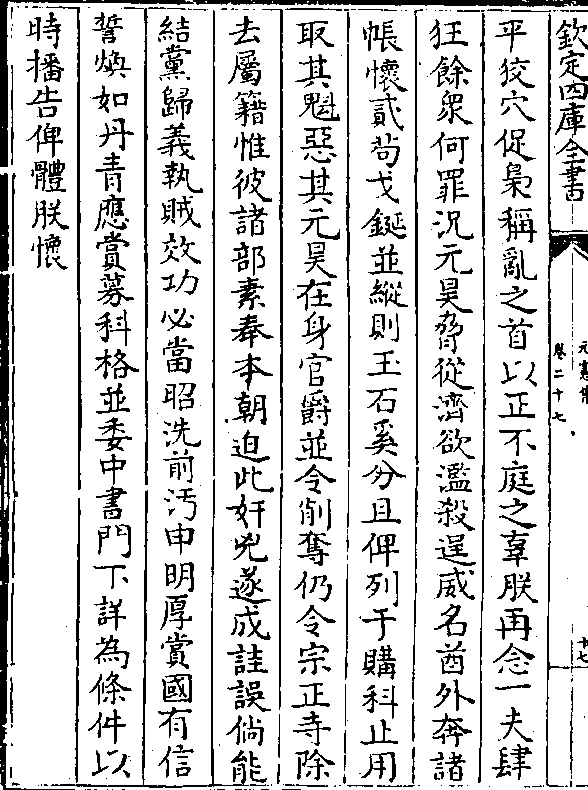 欽定四庫全書
元憲集
卷二十七
十七
平狡穴促梟稱亂之首以正不庭之辜朕再念一夫肆
狂餘衆何罪況元昊脅從濟欲濫殺逞威名酋外奔諸
帳懷貳茍戈鋋並縱則玉石奚分且俾列于購科止用
取其魁惡其元昊在身官爵並令削奪仍令宗正寺除
去屬籍惟彼諸部素奉本朝迫此奸兇遂成詿誤倘能
結黨歸義執賊效功必當昭洗前污申明厚賞國有信
誓煥如丹青應賞募科格並委中書門下詳為條件以
時播告俾體朕懷